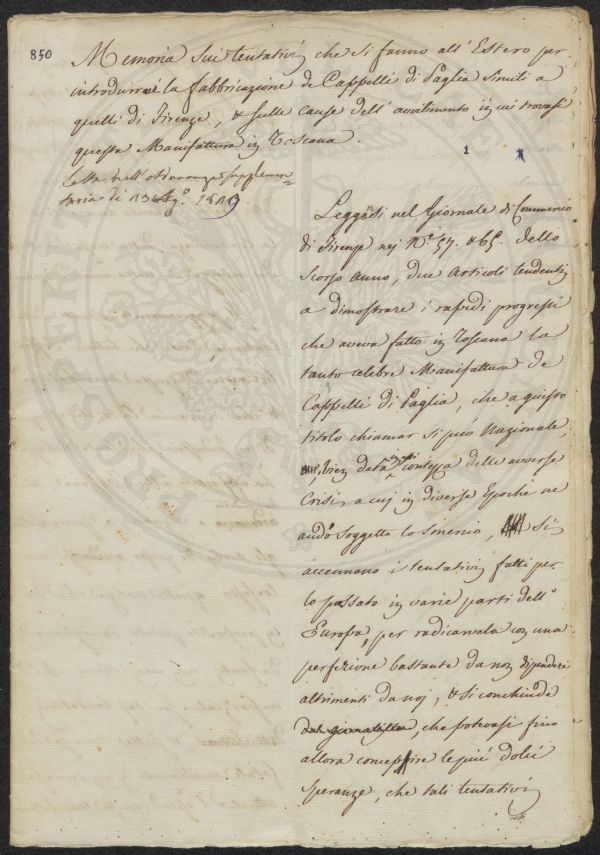 850
Memoria sui tentativi che si fanno all' Estero per
introdurre la fabbricazione de Cappelli di Paglia simili a
quelli di Firenze, e sulle cause dell' avvilimento in cui trovasi
questa Manifattura in Toscana.
1
Letta nell' adunanza supplemen=
taria de' 13 1819.
Leggesi nel Giornale di Commercio
di Firenze nei N.i 57. e 65. dello
scorso anno, due Articoli tendenti
a dimostrare i rapidi progressi
che aveva fatto in Toscana la
tanto celebre Manifattura de
Cappelli di Paglia, che a giusto
titolo chiamar si può Nazionale,
vien data contezza delle avverse
Crisi, a cui in diverse Epoche ne
andò soggetto lo smercio, si
accennano i tentativi fatti per
lo passato in varie parti dell'
Europa, per radicarvela con una
perfezione bastante da non dipendere
altrimenti da noi, e si conchiude
dal giornalista, che potevasi fino
allora concepire le più dolci
speranze, che tali tentativi